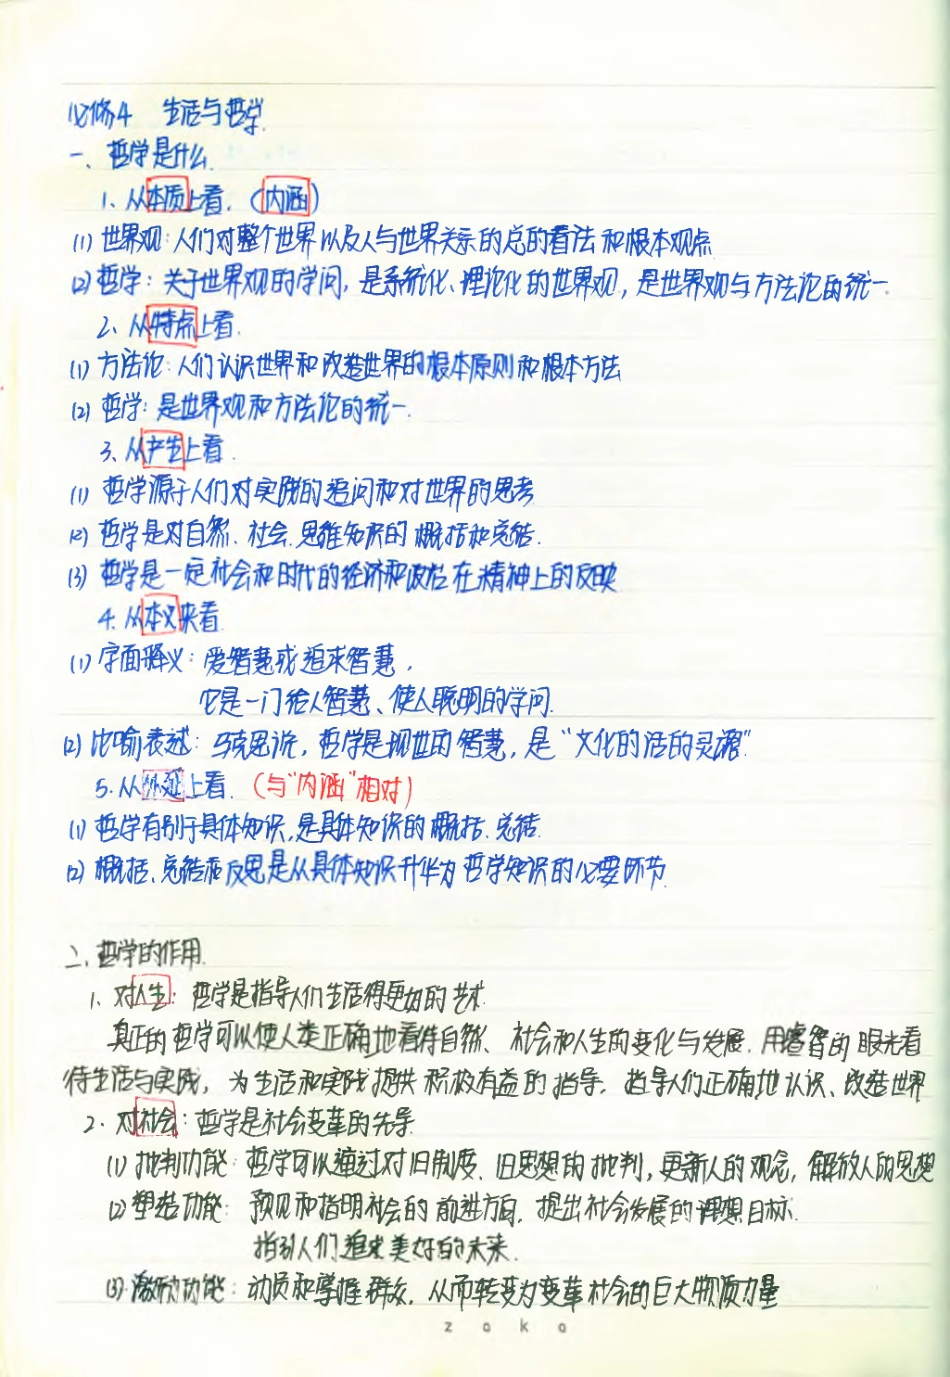 必修4 生活与哲学
一、哲学是什么
1、从本质上看.（内涵）
(1) 世界观:人们对整个世界以及人与世界关系的总的看法和根本观点
(2) 哲学:关于世界观的学问,是系统化、理论化的世界观,是世界观与方法论的统一.
2、从特点上看.
(1) 方法论:人们认识世界和改造世界的根本原则和根本方法
(2) 哲学:是世界观和方法论的统一.
3、从产生上看.
(1) 哲学源于人们对实践的追问和对世界的思考
(2) 哲学是对自然.社会.思维知识的概括和总结.
(3) 哲学是一定社会和时代的经济和政治在精神上的反映
4.从本义来看.
(1) 字面释义:爱智慧或追求智慧,
它是一门给人智慧、使人聪明的学问.
(2) 比喻表述:马克思说,哲学是现世的智慧,是“文化的活的灵魂”
5.从外延上看.(与“内涵”相对)
(1) 哲学有别于具体知识,是具体知识的概括.总结.
(2) 概括、总结和反思是从具体知识升华为哲学知识的必要环节.
二、哲学的作用.
1、对人生:哲学是指导人们生活得更好的艺术.
真正的哲学可以使人类正确地看待自然、社会和人生的变化与发展.用睿智的眼光看
待生活与实践,为生活和实践提供积极有益的指导.指导人们正确地认识、改造世界
2.对社会:哲学是社会变革的先导
(1) 批判功能:哲学可以通过对旧制度.旧思想的批判,更新人的观念,解放人的思想
(2) 塑造功能:预见和指明社会的前进方向.提出社会发展的理想目标.
指引人们追求美好的未来.
(3) 激励功能:动员和掌握群众.从而转变为变革社会的巨大物质力量
zaka